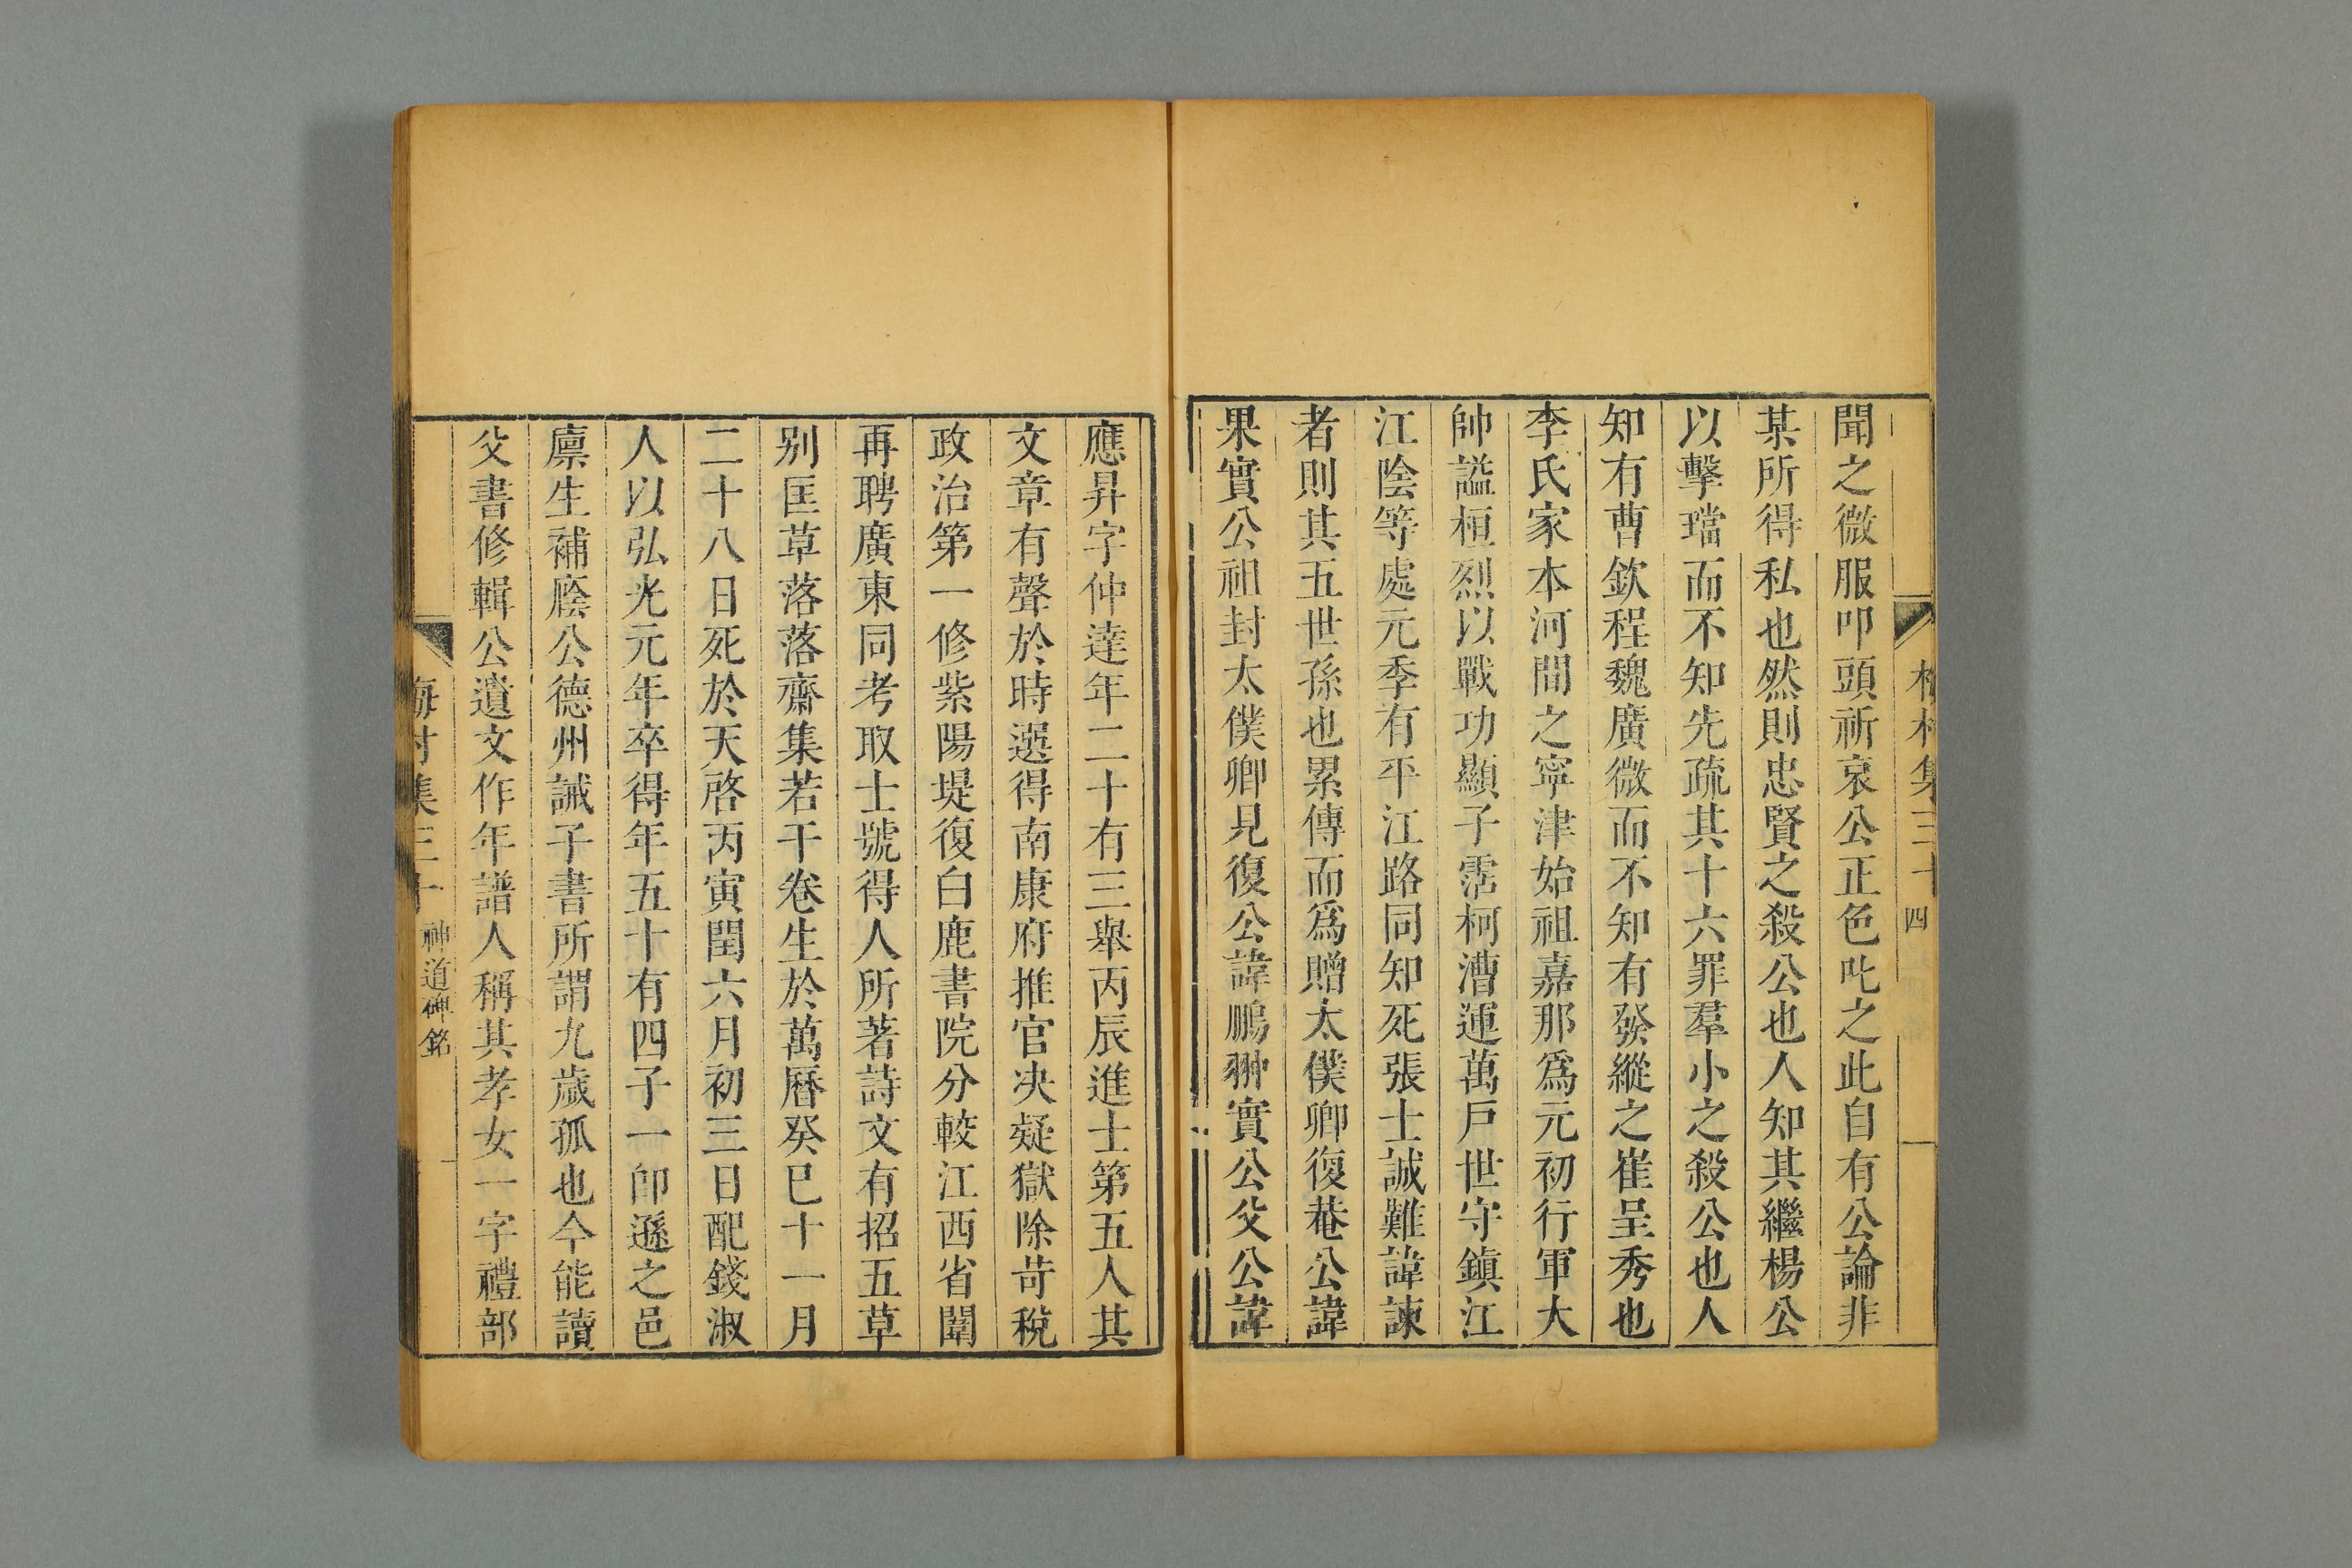 梅村集三十
四
聞之微服叩頭祈哀公正色叱之此自有公論非
某所得私也然則忠賢之殺公也人知其繼楊公
以擊璫而不知先疏其十六罪羣小之殺公也人
知有曹欽程魏廣微而不知有發縱之崔呈秀也
李氏家本河間之寧津始祖嘉那爲元初行軍大
帥謚桓烈以戰功顯子霑柯漕運萬戸世守鎮江
江陰等處元季有平江路同知死張士誠難諱諫
者則其五世孫也累傳而爲贈太僕卿復菴公諱
果實公祖封太僕卿見復公諱鵬翀實公父公諱
應昇字仲達年二十有三舉丙辰進士第五人其
文章有聲於時選得南康府推官决疑獄除苛稅
政治第一修紫陽堤復白鹿書院分較江西省闈
再聘廣東同考取士號得人所著詩文有招五草
别匡草落落齋集若干卷生於萬曆癸巳十一月
二十八日死於天啓丙寅閏六月初三日配錢淑
人以弘光元年卒得年五十有四子一卽遜之邑
廪生補廕公德州誡子書所謂九歲孤也今能讀
父書修輯公遺文作年譜人稱其孝女一字禮部
梅村集三十
神道碑銘